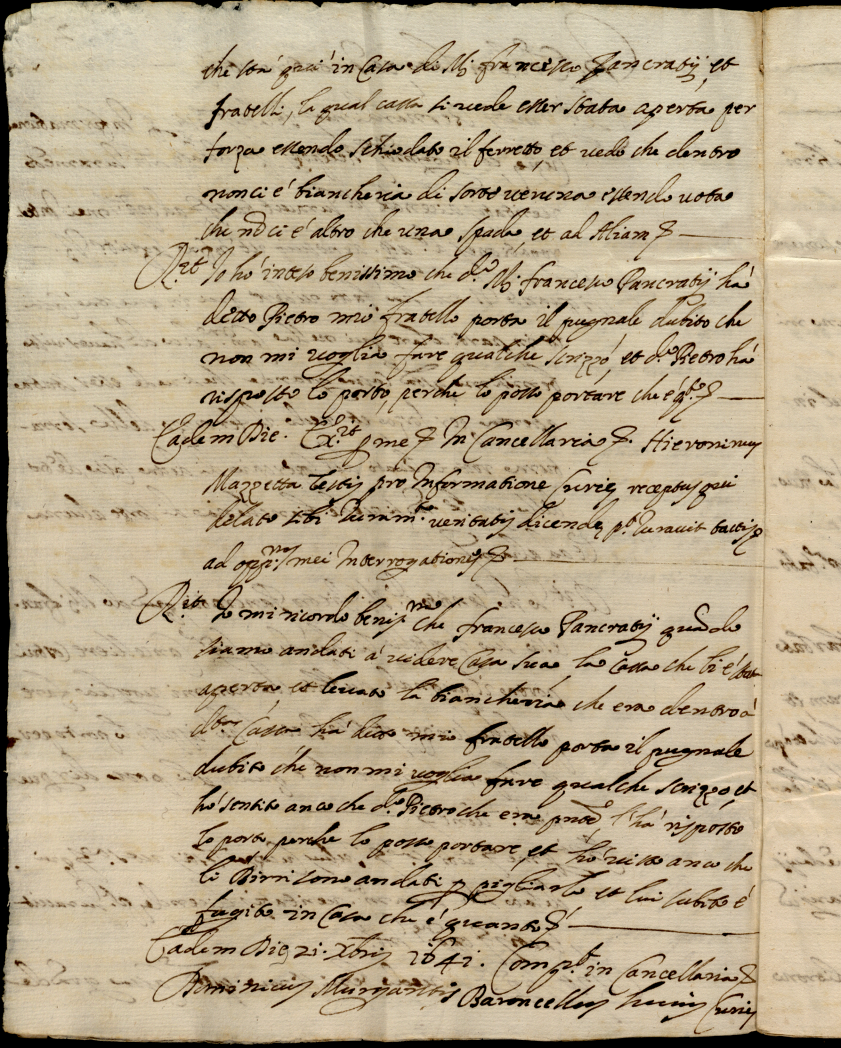 che sta' qui' in Casa de M. francesco Pancratij et
fratelli, la qual cassa si vede esser stata aperta per
forza essendo schiodato il ferretto, et vedo che dentro
non ci e' biancheria di sorte veruna essendo vota
che nõ ci e' altro che una spada, et ad aliam &
R.it Io ho inteso benissimo che d.o M. francesco Pancratij ha'
detto Pietro mio fratello porta il pugnale dubito che
non mi voglia fare qualche scrizzo, et d.o Pietro ha'
risposto lo porto, perche lo posso portare che e' q.to &
Eadem Die. Ex.it p me & In Cancellaria &. Hieronimus
Mazzetta Testis pro Informatione Curie receptus qui
delato sibi Juram.to veritatis dicende, p.t Juravit tactis &
ad opp.nas mei Interrogationes &
R.it Io mi ricordo beniss.mo che francesco Pancratij quãdo
siamo andati a' videre Casa sua la Cassa che li e' stata
aperta et levato la biancheria che era dentro a'
d.ta Cassa ha' detto mio fratello porta il pugnale
dubito che non mi voglia fare qualche scrizzo et
ho' sentito anco che d.o Pietro che era pñte l'ha' risposto
Io porto perche lo posso portare et ho' visto anco che
li Birri sono andati p pigliarlo et lui subito e'
fugito in Casa che e' quanto &
Eadem Die 21. Xbris 1641. Comp.t in Cancellaria &
Dominicus Baroncellus Curie